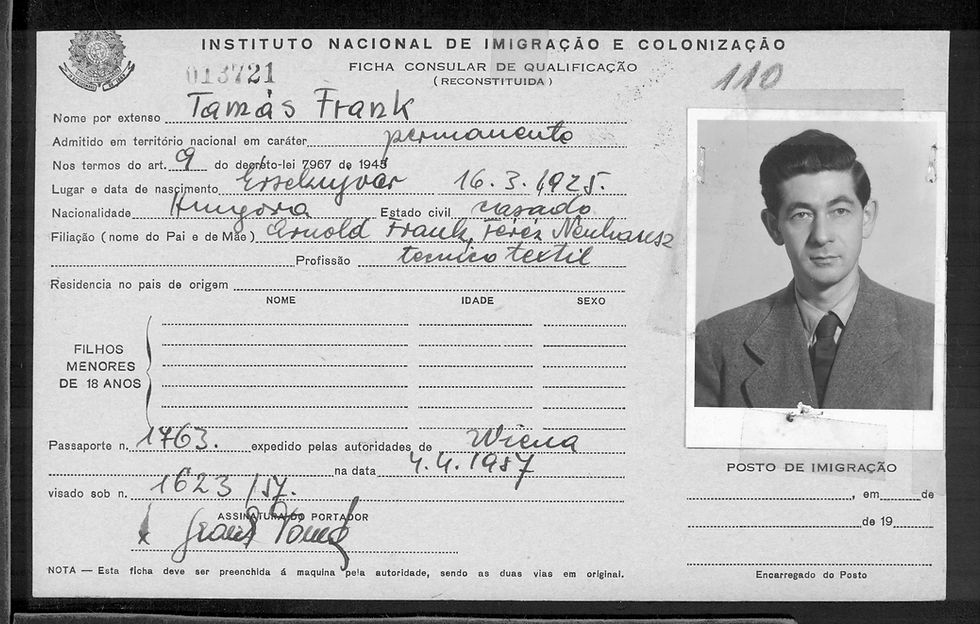 INSTITUTO NACIONAL DE IMIGRAÇÃO E COLONIZAÇÃO
013721
FICHA CONSULAR DE QUALIFICAÇÃO
(RECONSTITUIDA)
110
Nome por extenso Tamás Frank
Admitido em território nacional em caráter permanente
Nos termos do art. 9 do decreto-lei 7967 de 1945
Lugar e data de nascimento Ersekujvar 16.3.1925.
Nacionalidade Hungara Estado civil casado
Filiação (nome do Pai e de Mãe) Arnold Frank, Teréz Neuhausz
Profissão tecnico textil
Residencia no pais de origem
NOME IDADE SEXO
FILHOS
MENORES
DE 18 ANOS
Passaporte n. 1763. expedido pelas autoridades de Wiena
na data 4.4.1957
visado sob n. 1623/57.
ASSINATURA DO PORTADOR
Frank Tamás
NOTA — Esta ficha deve ser preenchida á maquina pela autoridade, sendo as duas vias em original.
POSTO DE IMIGRAÇÃO
, em de
de 19
Encarregado do Posto